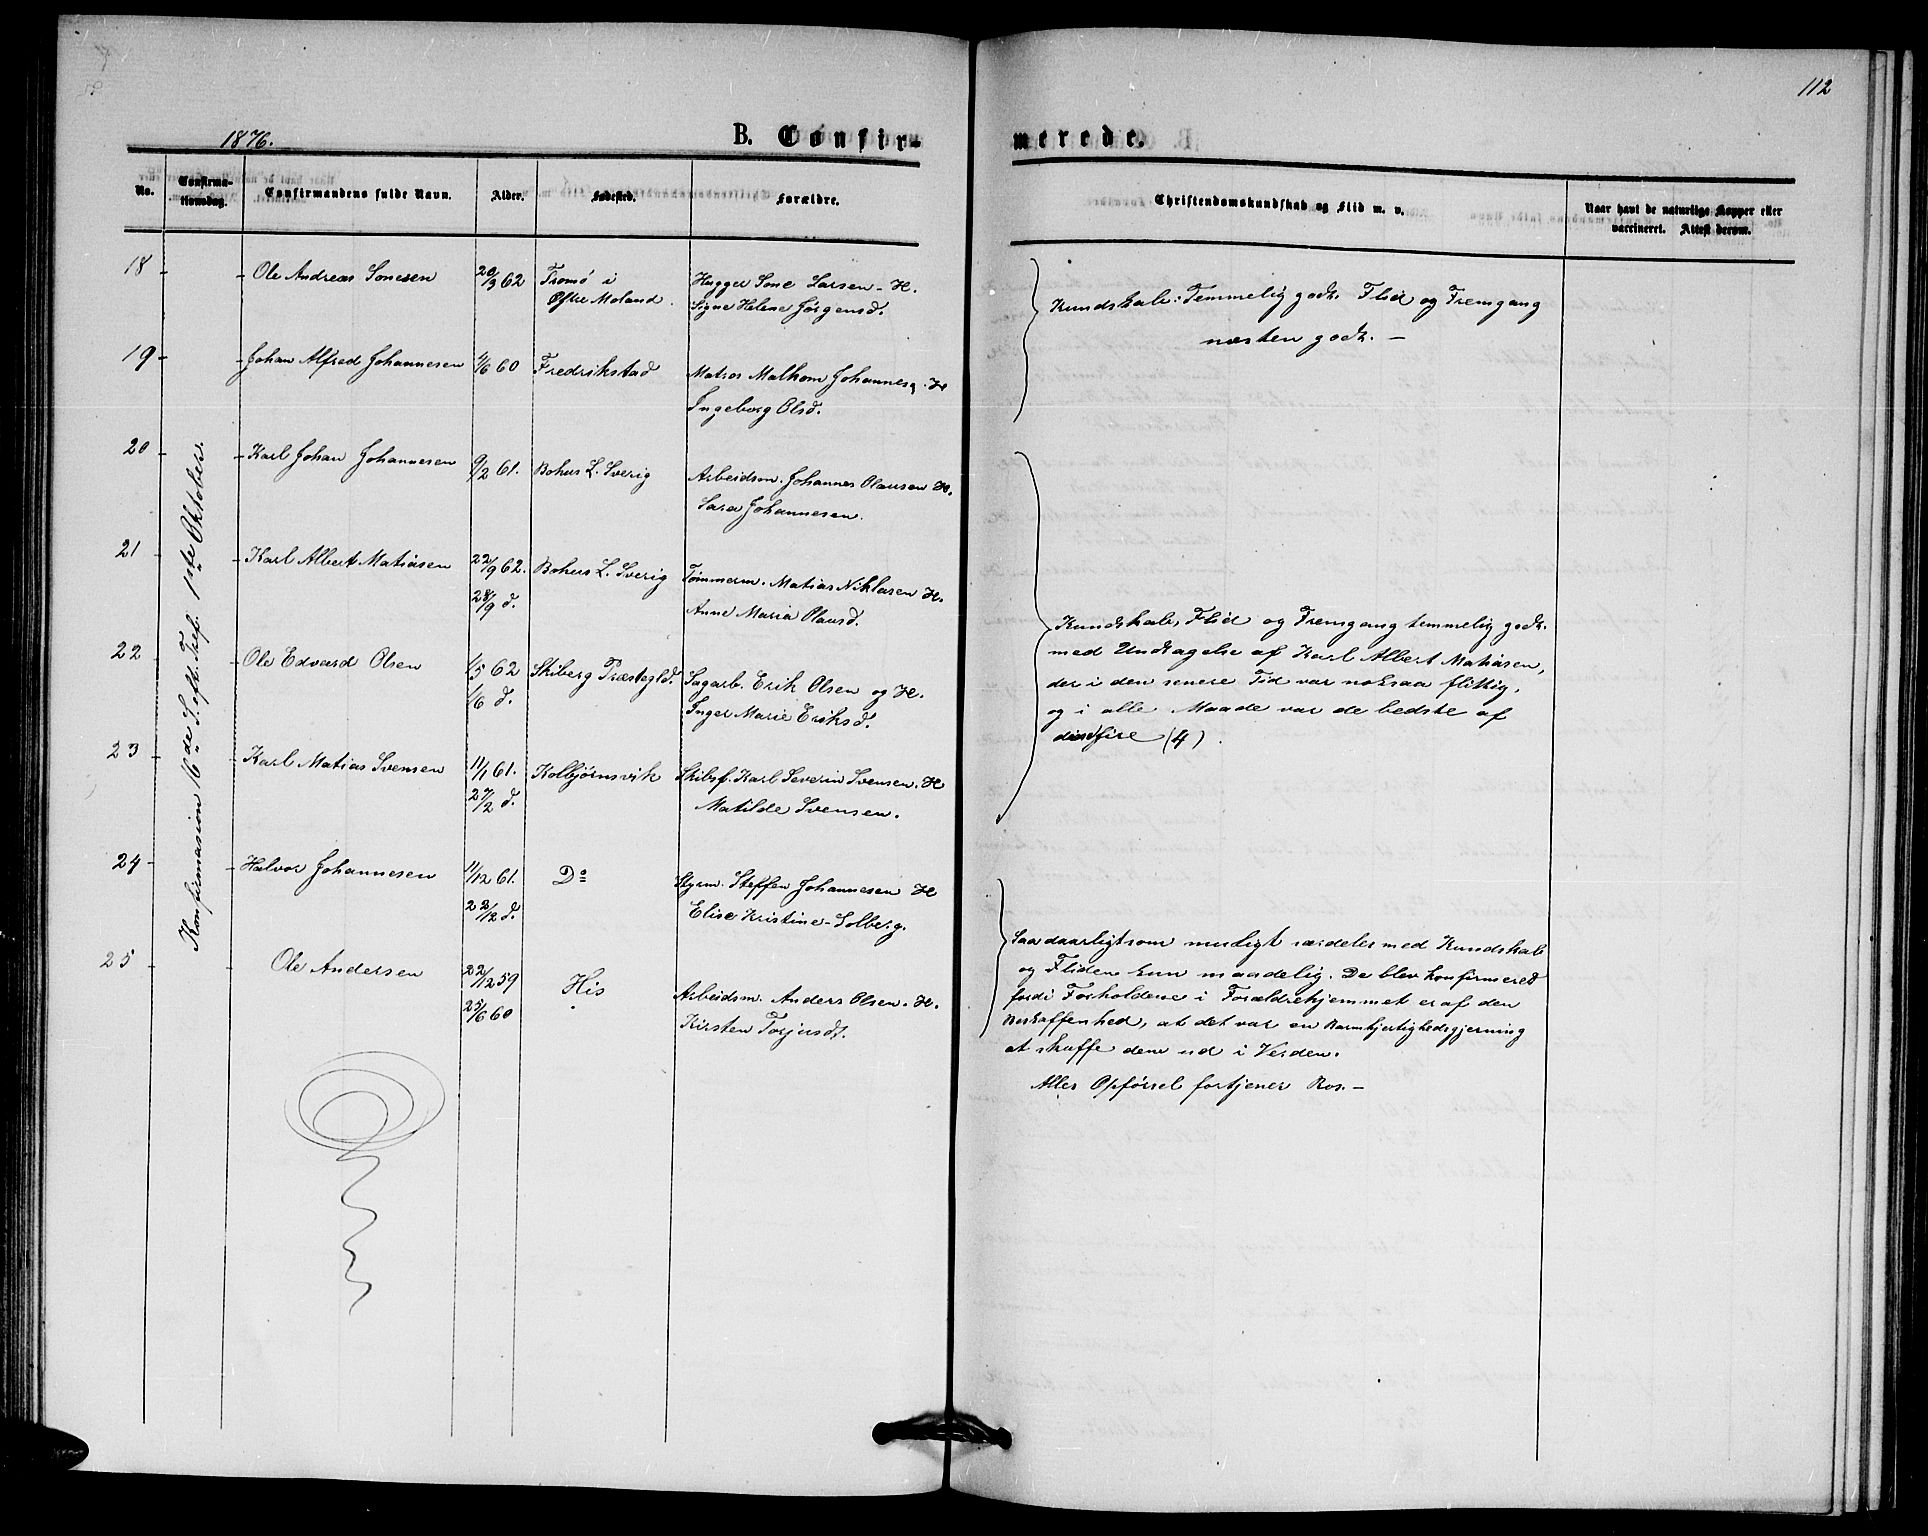 112
1876.
B. Confir-
merede.
No.
Confirma-
tionsdag.
Confirmandens fulde Navn.
Alder.
Fødested.
Forældre.
Christendomskundskab og Flid m. v.
Naar havt de naturlige Kopper eller
vaccineret. Attest derom.
Konfirmasion 16de S. eft. Tref. 1ste Oktober.
18 - Ole Andreas Sonesen 20/9 62 Tromø i
Østre Moland.
Hugger Sone Larsen - H.
Signe Helene Jørgensd.
19 - Johan Alfred Johannesen 1/6 60 Fredrikstad
Matros Malkom Johannes, H
Ingeborg Olsd.
Kundskab: Temmelig godt. Flid og Fremgang
næsten godt. -
20 - Karl Johan Johannesen 9/2 61. Bohus L. Sverig
Arbeidsm. Johannes Olausen H.
Sara Johannesen.
21 - Karl Albert Matiasen 22/9 62. Bohus L. Sverig
28/9 d.
Tømmerm. Matias Niklasen H.
Anne Maria Olausd.
22 - Ole Edvard Olsen 1/5 62 Skiberg Præstegld.
1/6 d.
Sagarb. Erik Olsen og H.
Inger Marie Eriksd.
23 - Karl Matias Svensen 11/1 61. Kolbjørnsvik
27/2 d.
Skibsf. Karl Severin Svensen. H
Matilde Svensen.
Kundskab, Flid og Fremgang temmelig godt.
med Undtagelse af Karl Albert Matiasen,
der i den senere Tid var noksaa flittig,
og i alle Maade var de bedste af
disse fire (4).
24 - Halvor Johannesen 11/12 61. Do
23/12 d.
Styrm. Steffen Johannesen H
Elise Kristine Solberg.
25 - Ole Andersen 22/12 59 His
25/6 60
Arbeidsm. Anders Olsen. H.
Kirsten Torjusdt.
Saa daarligt som muligt særdeles med Kundskab
og Fliden kun maadelig. De blev konfirmeret
fordi Forholdene i Forældrehjemmet er af den
Beskaffenhed, at det var en Barmhjertighedsgjerning
at skaffe dem ud i Verden.
Alles Opførsel fortjener Ros. -